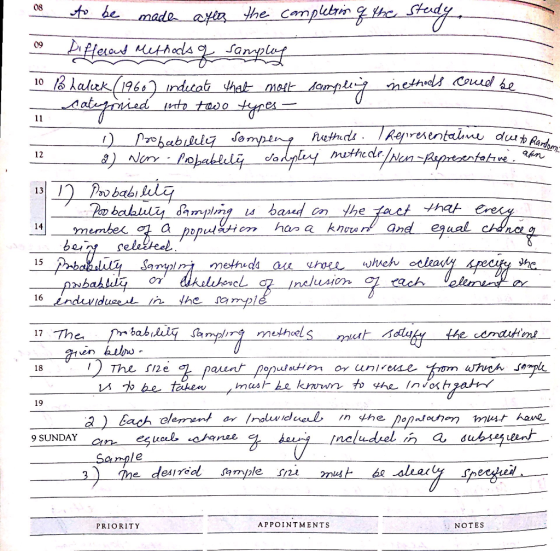 08 to be made after the completion of the study.
09 Different Methods of Sampling
10 Blalock (1960) indicate that most sampling methods could be
categorized into two types —
11
1) Probability Sampling Methods. / Representative due to Random
12 2) Non-Probability sampling methods / Non-Representative.
13 1) Probability
Probability Sampling is based on the fact that every
14 member of a population has a known and equal chance of
being selected.
15 Probability Sampling methods are those which clearly specify the
probability or likelihood of inclusion of each element or
16 individual in the sample
17 The probability sampling methods must satisfy the conditions
given below.
18 1) The size of parent population or universe from which sample
is to be taken, must be known to the investigator
19
2) Each element or Individual in the population must have
9 SUNDAY an equal chance of being included in a subsequent
Sample
3) The desired sample size must be clearly specified.
PRIORITY APPOINTMENTS NOTES